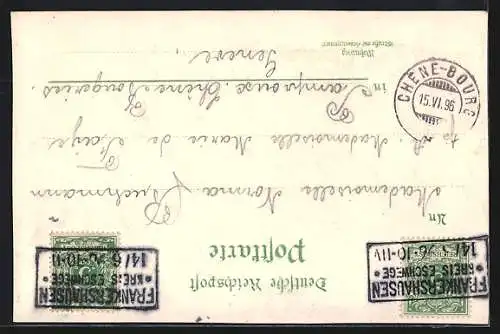 FRANKERSHAUSEN
* KREIS ESCHWEGE *
14/6 96 10-11V
FRANKERSHAUSEN
* KREIS ESCHWEGE *
14/6 96 10-11V
Deutsche Reichspost
Postkarte
An
Mademoiselle Norma
Mademoiselle Marie de
in Campagne. Chêne Bougeries
Wohnung
(Straße und Hausnummer)
Genève.
CHÊNE-BOURG
15.VI.96